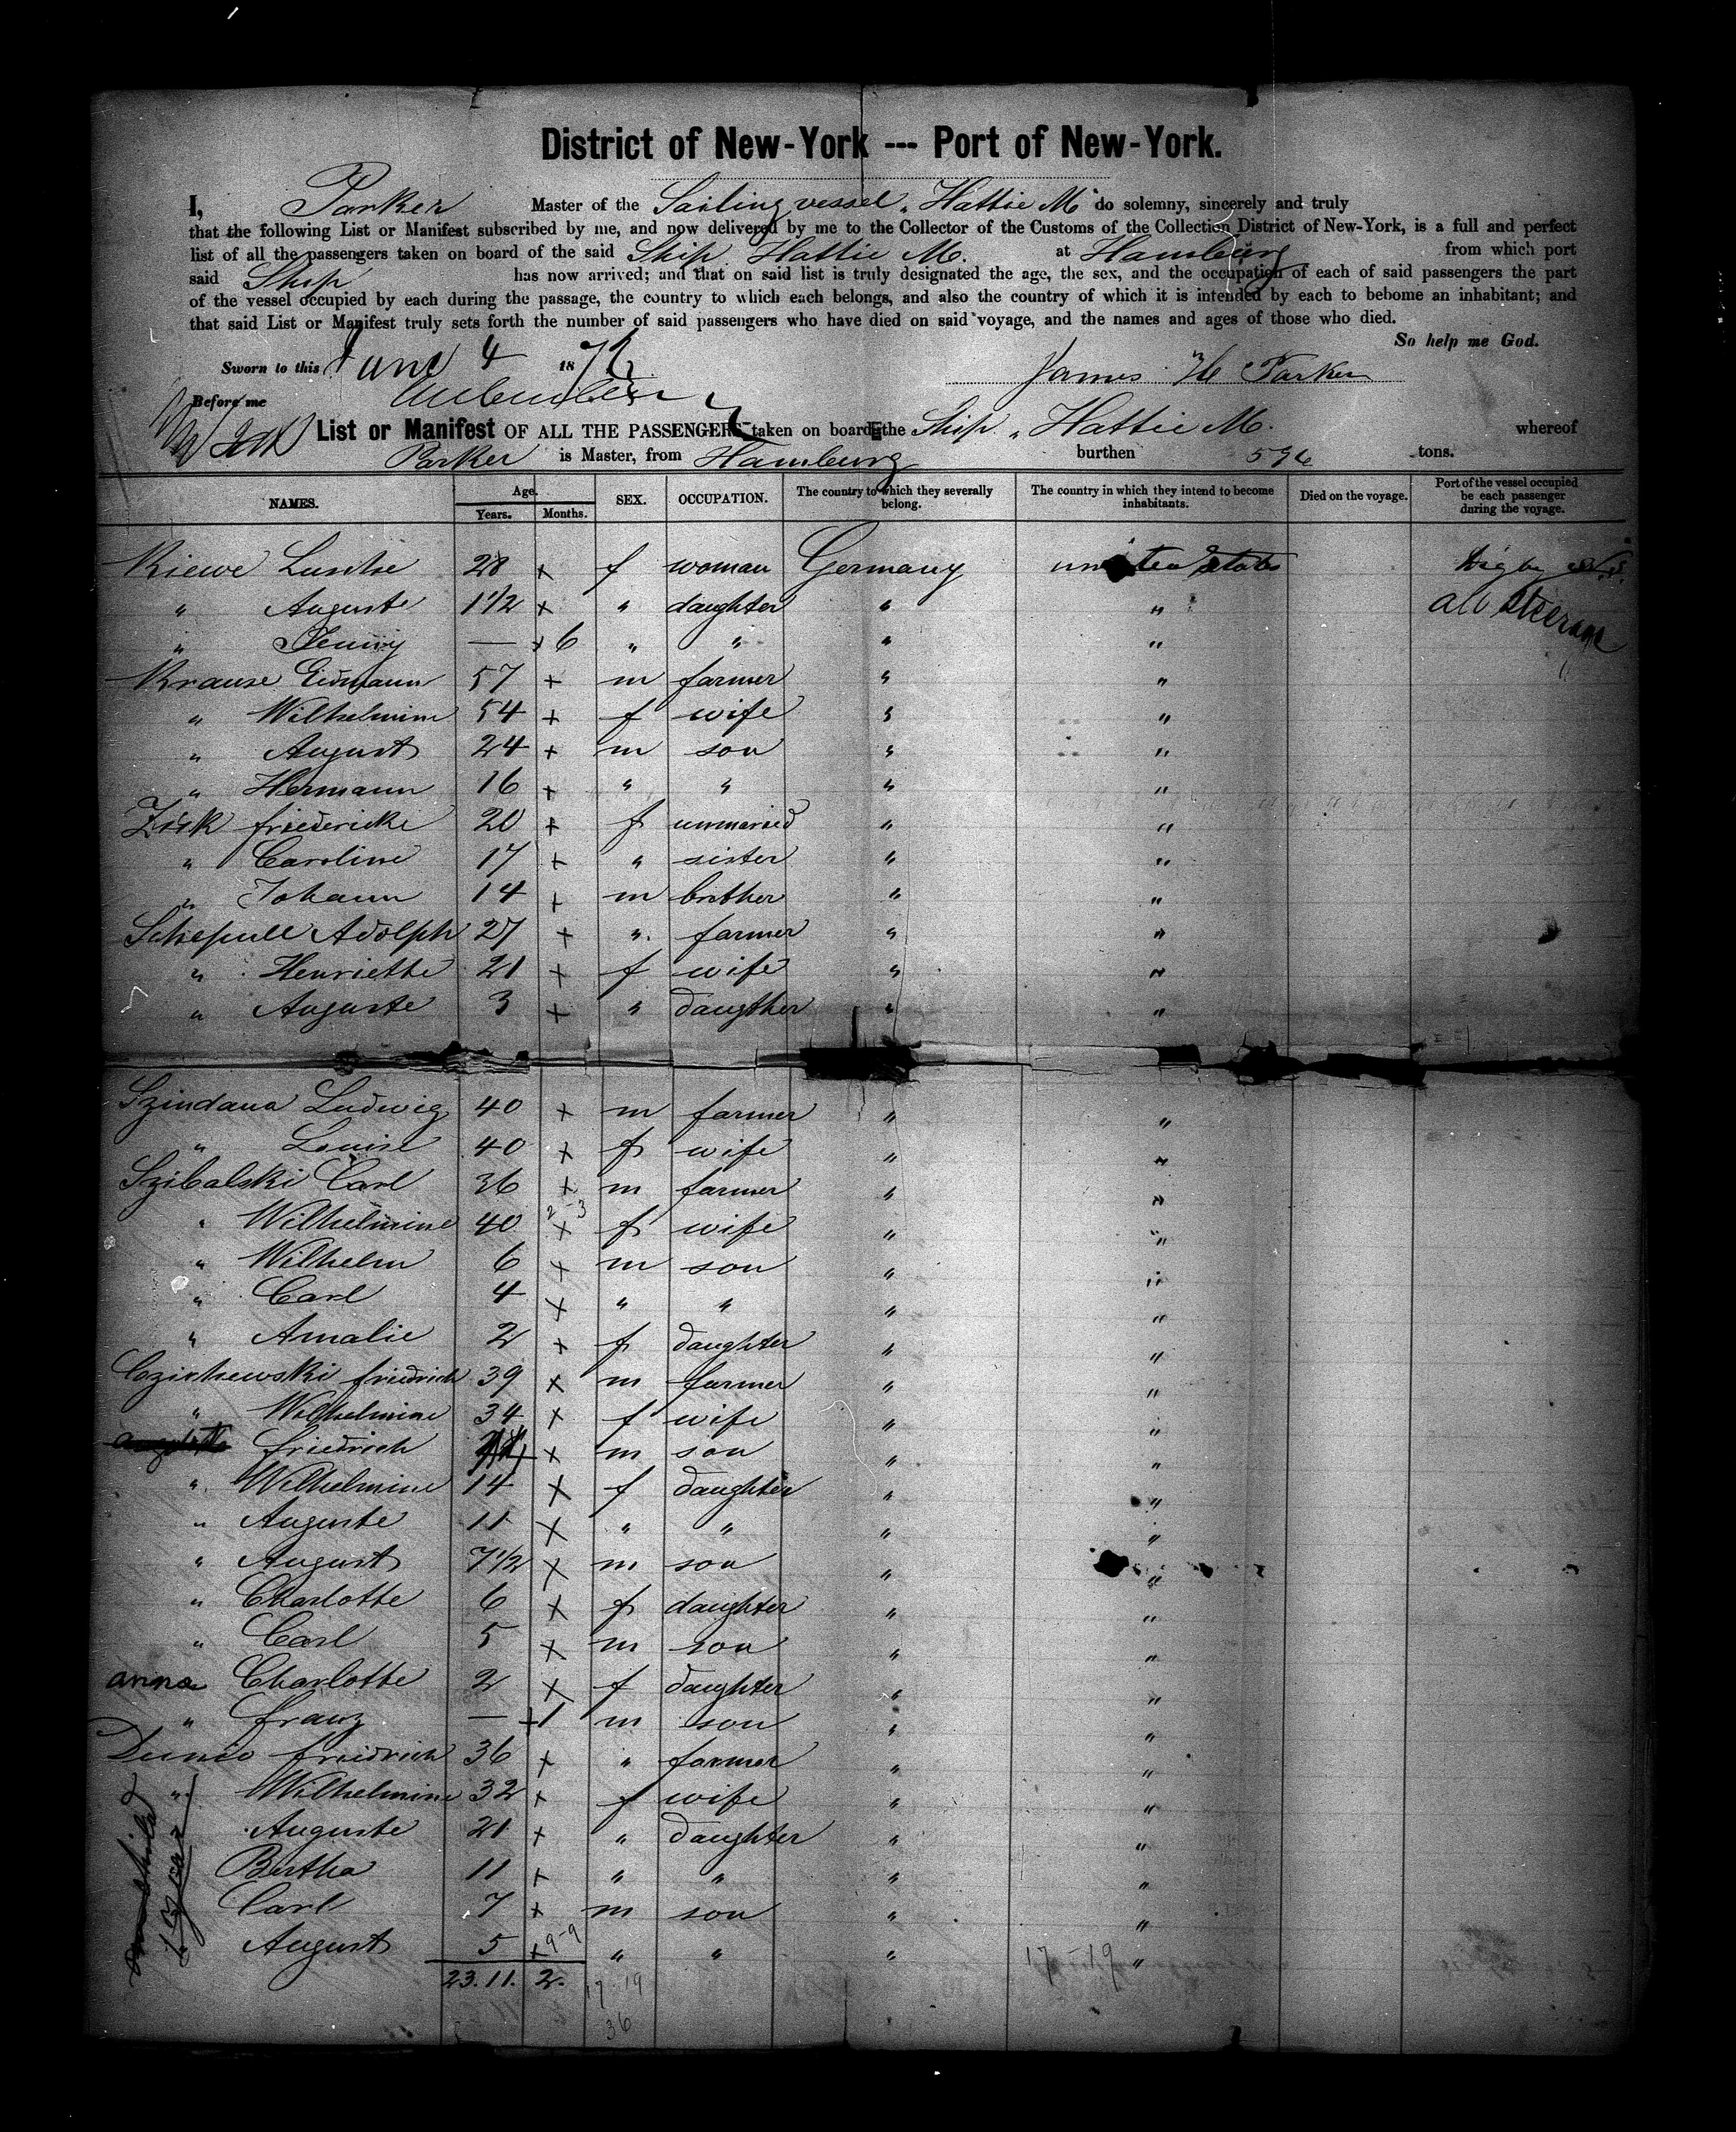 District of New-York --- Port of New-York.
I, Parker Master of the Sailing vessel „Hattie M" do solemny, sincerely and truly
that the following List or Manifest subscribed by me, and now delivered by me to the Collector of the Customs of the Collection District of New-York, is a full and perfect
list of all the passengers taken on board of the said Ship Hattie M. at Hamburg from which port
said Ship has now arrived; and that on said list is truly designated the age, the sex, and the occupation of each of said passengers the part
of the vessel occupied by each during the passage, the country to which each belongs, and also the country of which it is intended by each to bebome an inhabitant; and
that said List or Manifest truly sets forth the number of said passengers who have died on said voyage, and the names and ages of those who died.
So help me God.
Sworn to this June 4 1872 James H Parker
Before me
List or Manifest OF ALL THE PASSENGERS taken on board the Ship „Hattie M. whereof
Parker is Master, from Hamburg burthen 596 tons.
NAMES. Age. Years. Months. SEX. OCCUPATION. The country to which they severally belong. The country in which they intend to become inhabitants. Died on the voyage. Port of the vessel occupied be each passenger during the voyage.
Kiewe 28 x f woman Germany united States Digby N.S.
" Auguste 1 1/2 x " daughter " " all Steerage
" — x 6 " " " "
Krause 57 x m farmer " "
" Wilhelmine 54 x f wife " "
" August 24 x m son " "
" Hermann 16 x " " " "
friedericke 20 x f unmaried " "
" Caroline 17 x " sister " "
" Johann 14 x m brother " "
Schepull Adolph 27 x " farmer " "
" Henriette 21 x f wife " "
" Auguste 3 x " daugther " "
Szindana Ludwig 40 x m farmer " "
" Louise 40 x f wife " "
Szibalski Carl 36 x m farmer " "
" Wilhelmine 40 2-3 x f wife " "
" Wilhelm 6 x m son " "
" Carl 4 x " " " "
" Amalie 2 x f daughter " "
friedrich 39 x m farmer " "
" Wilhelmine 34 x f wife " "
friedrich x m son " "
" Wilhelmine 14 x f daughter " "
" Auguste 11 x " " " "
" August 7 1/2 x m son " "
" Charlotte 6 x f daughter " "
" Carl 5 x m son " "
anna Charlotte 2 x f daughter " "
" franz — x 1 m son " "
friedrich 36 x " farmer " "
" Wilhelmine 32 x f wife " "
Auguste 21 x " daughter " "
Bertha 11 x " " " "
Carl 7 x m son " "
August 5 x 9-9 " " " 17-19 "
23. 11. 2. 17-19
36